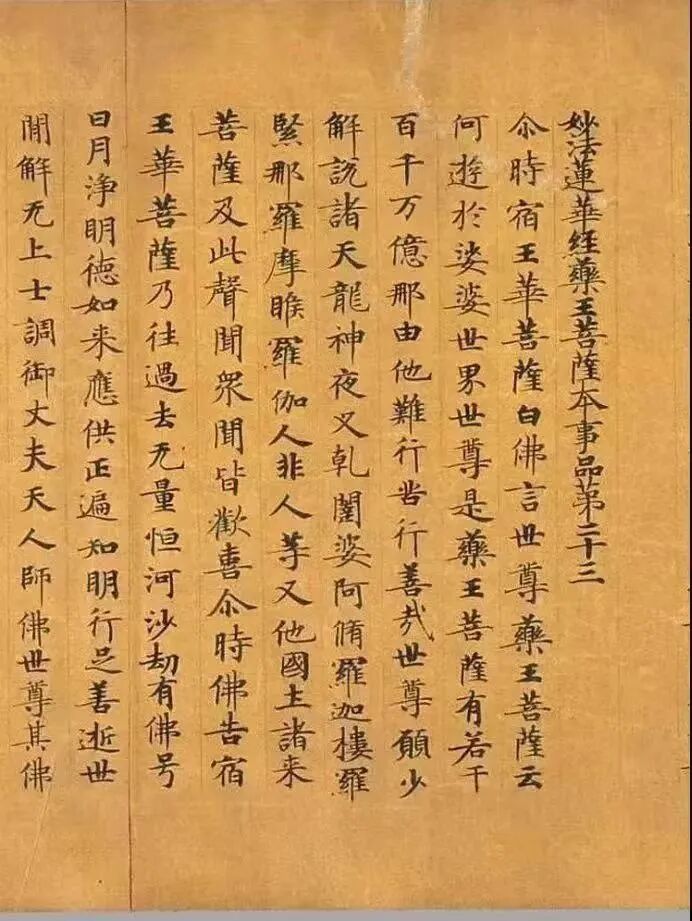 妙法蓮華經藥王菩薩本事品第二十三
尒時宿王華菩薩白佛言世尊藥王菩薩云
何遊於娑婆世界世尊是藥王菩薩有若干
百千万億那由他難行苦行善哉世尊願少
解說諸天龍神夜叉乹闥婆阿脩羅迦樓羅
緊那羅摩睺羅伽人非人等又他國土諸来
菩薩及此聲聞眾聞皆歡喜尒時佛告宿
王華菩薩乃往過去无量恒河沙劫有佛号
日月淨明德如来應供正遍知明行足善逝世
間解无上士調御丈夫天人師佛世尊其佛